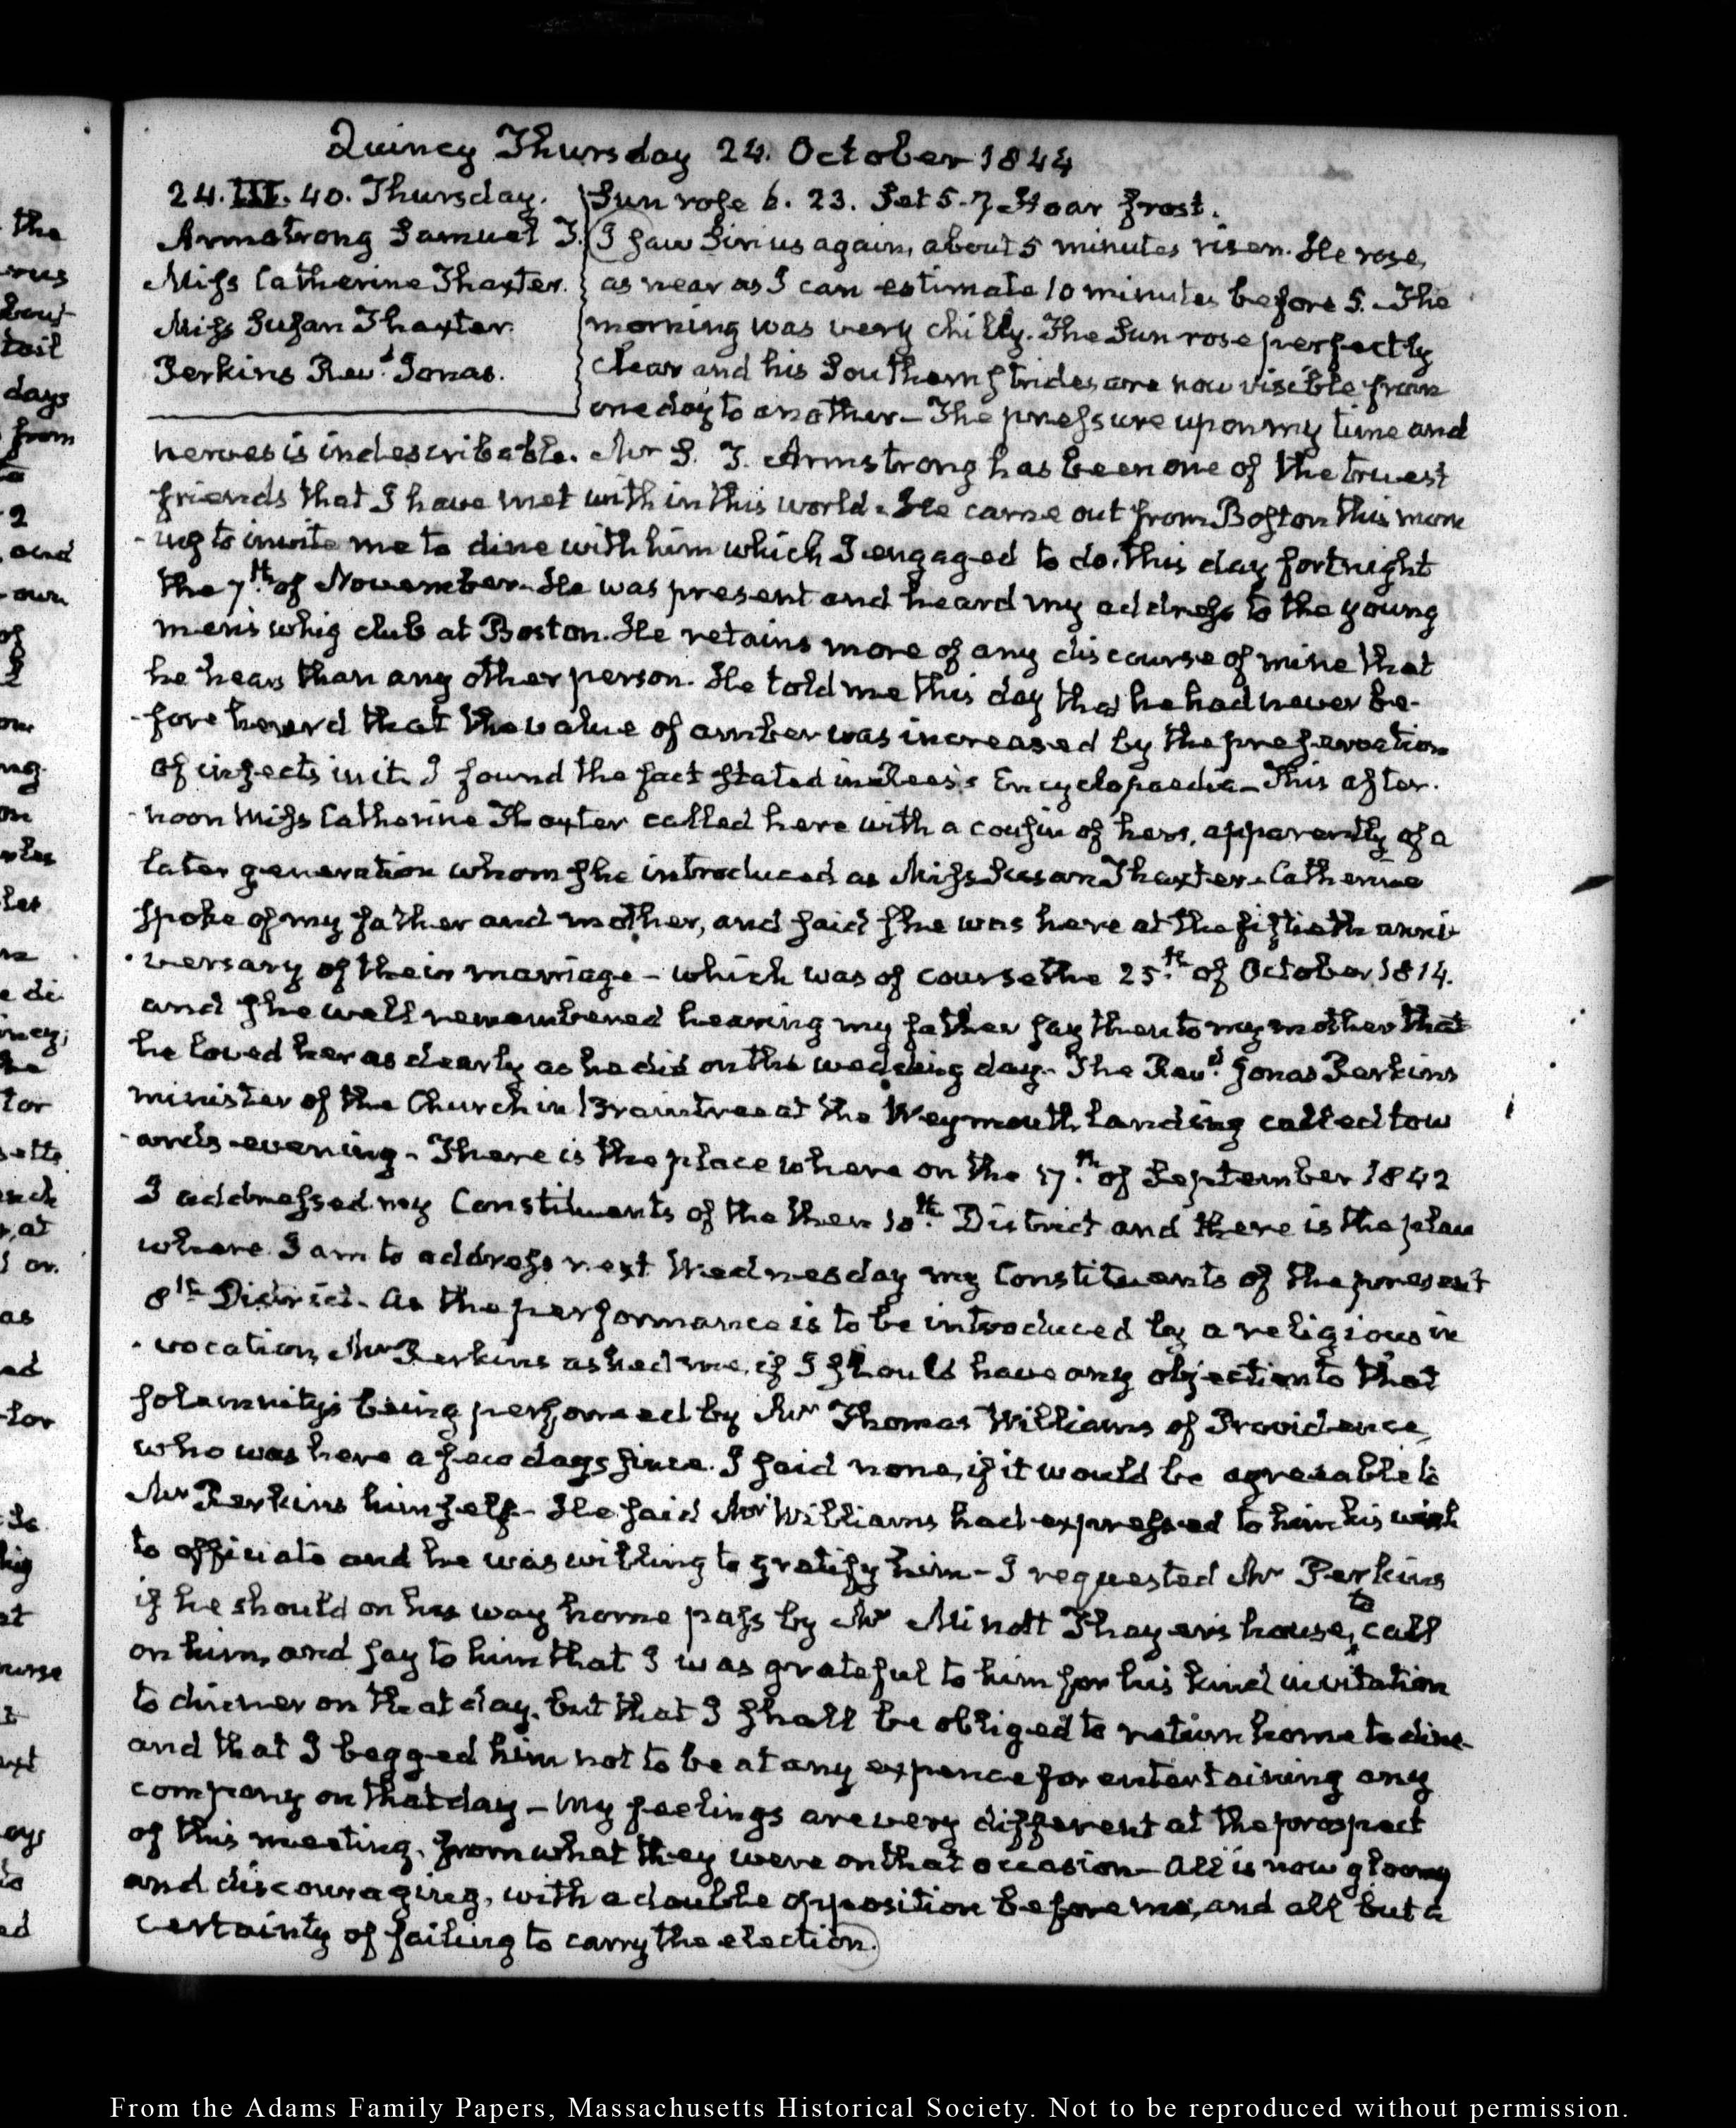 Quincy Thursday 24. October 1844
24. III. 40. Thursday.
Armstrong Samuel T.
Miss Catherine Thaxter.
Miss Susan Thaxter.
Perkins Revd. Jonas.
Sun rose 6. 23. Set 5-7 Hoar frost.
I saw Sirius again, about 5 minutes risen. He rose,
as near as I can estimate 10 minutes before 5. The
morning was very chilly. The Sun rose perfectly
clear and his Southern strides are now visible from
one day to another— The pressure upon my time and
nerves is indescribable. Mr S. T. Armstrong has been one of the truest
friends that I have met with in this world. He came out from Boston this morn
-ing to invite me to dine with him which I engaged to do, this day fortnight
the 7th. of November. He was present and heard my address to the young
men's whig club at Boston. He retains more of any discourse of mine that
he hears than any other person. He told me this day that he had never be-
-fore heard that the value of amber was increased by the preservation
of insects in it. I found the fact stated in Rees's Encyclopaedia— This after-
-noon Miss Catherine Thaxter called here with a cousin of hers, apparently of a
later generation whom she introduced as Miss Susan Thaxter. Catherine
spoke of my father and mother, and said she was here at the fiftieth anni-
-versary of their marriage— which was of course the 25th. of October 1814.
and she well remembered hearing my father say then to my mother that
he loved her as dearly as he did on the wedding day. The Revd. Jonas Perkins
minister of the Church in Braintree at the Weymouth Landing called tow
-ards evening. There is the place where on the 17th. of September 1842
I addressed my Constituents of the then 10th. District and there is the place
where I am to address next Wednesday my Constituents of the present
8th District. As the performance is to be introduced by a religious in
-vocation, Mr Perkins asked me, if I should have any objection to that
solemnity's being performed by Mr Thomas Williams of Providence,
who was here a few days since. I said none, if it would be agreeable to
Mr Perkins himself— He said Mr Williams had expressed to him his wish
to officiate and he was willing to gratify him— I requested Mr Perkins
if he should on his way home pass by Mr Minott Thayer's house, to call
on him, and say to him that I was grateful to him for his kind invitation
to dinner on that day, but that I shall be obliged to return home to dine—
and that I begged him not to be at any expence for entertaining any
company on that day— My feelings are very different at the prospect
of this meeting, from what they were on that occasion— All is now gloomy
and discouraging, with a double opposition before me, and all but a
certainty of failing to carry the election.
the
days
from
2
and
own
of
ng
di
tor
at
as
ed
for
his
at
ed
From the Adams Family Papers, Massachusetts Historical Society. Not to be reproduced without permission.